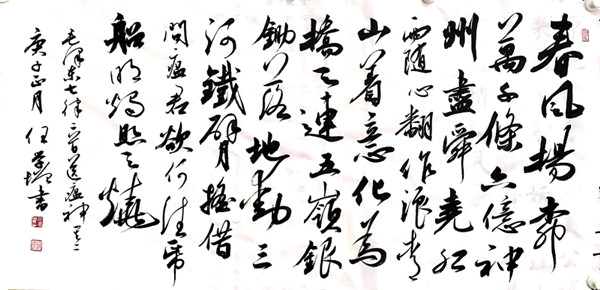 春风杨柳
萬千條六億神
州盡舜堯红
雨随心翻作浪青
山着意化為
橋天連五嶺銀
鋤落地動三
河鐵臂摇借
問瘟君欲何往纸
船明燭照天燒
毛泽东七律二首送瘟神其二
庚子正月任学書